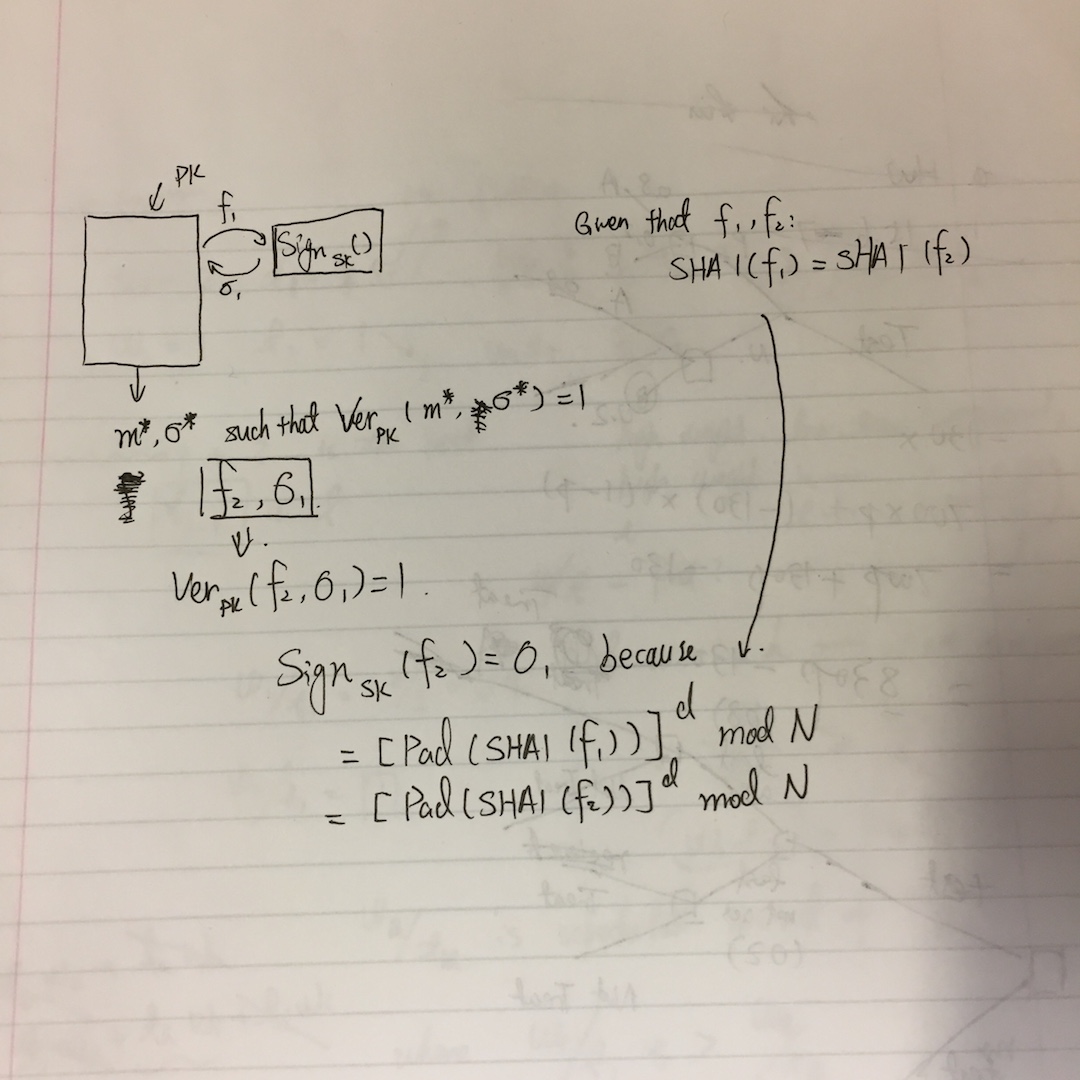 PK
f₁
Sign_SK()
σ₁
Given that f₁, f₂:
SHA1(f₁) = SHA1(f₂)
m*, σ* such that Ver_PK(m*, σ*) = 1
f₂, σ₁
Ver_PK(f₂, σ₁) = 1.
Sign_SK(f₂) = σ₁ because
= [Pad(SHA1(f₁))]^d mod N
= [Pad(SHA1(f₂))]^d mod N